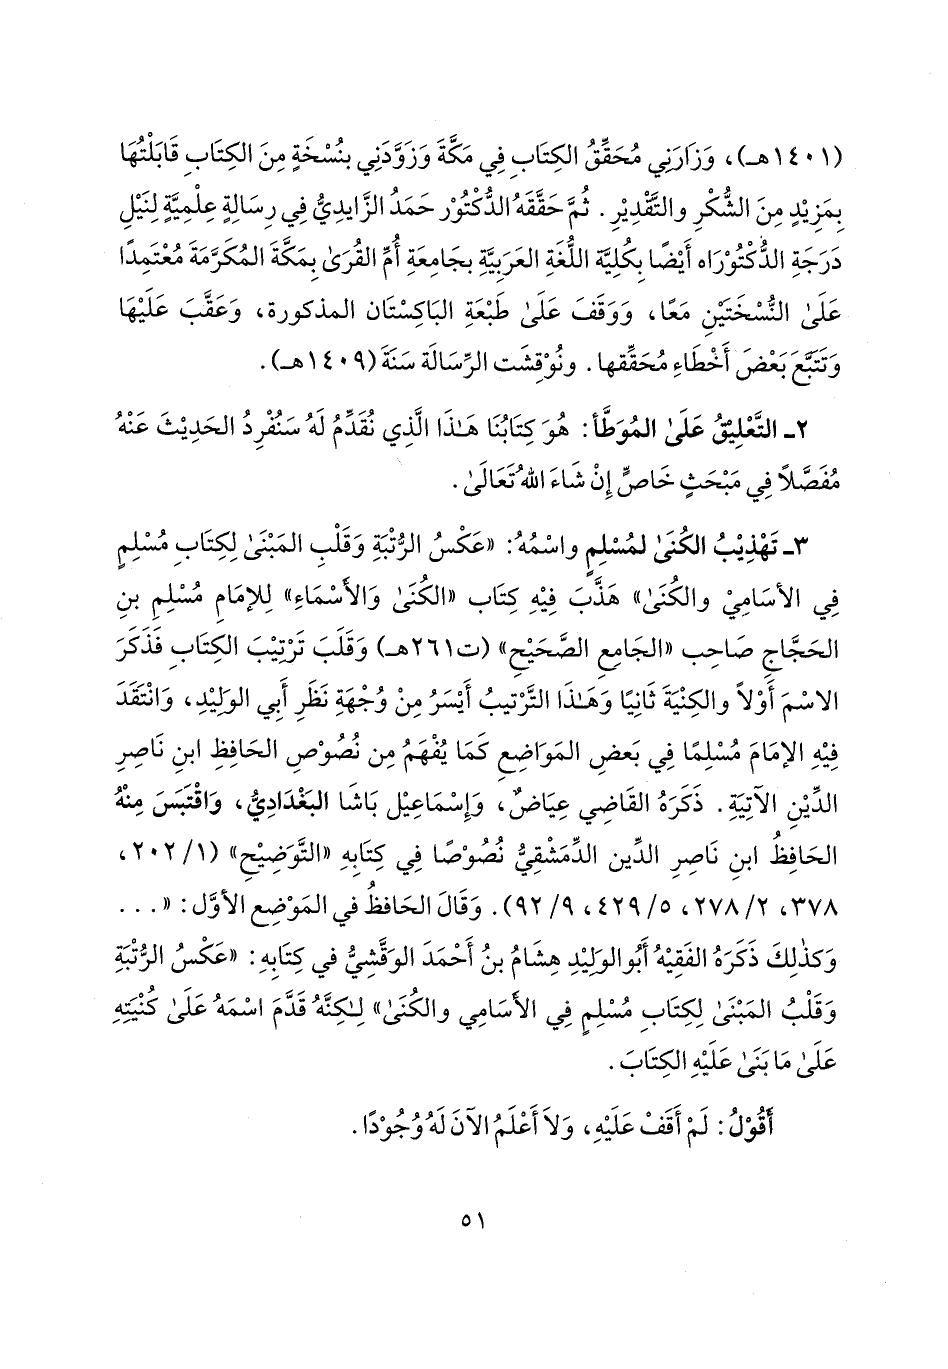 (١٤٠١هـ)، وَزَارَنِي مُحَقِّقُ الكِتَابِ فِي مَكَّةَ وَزَوَّدَنِي بِنُسْخَةٍ مِنَ الكِتَابِ قَابَلْتُهَا
بِمَزِيْدٍ مِنَ الشُّكْرِ والتَّقْدِيْرِ. ثُمَّ حَقَّقَهُ الدُّكْتُوْر حَمَدُ الزَّايدِيُّ فِي رِسَالةٍ عِلْمِيَّةٍ لِنَيْلِ
دَرَجَةِ الدُّكْتُوْرَاه أَيْضًا بِكُلِيَّة اللُّغَةِ العَرَبِيَّةِ بِجَامِعَةِ أُمِّ القُرَىٰ بِمَكَّةَ المُكَرَّمَةَ مُعْتَمِدًا
عَلَىٰ النُّسْخَتَيْنِ مَعًا، وَوَقَفَ عَلَىٰ طَبْعَةِ البَاكِسْتَان المذكورة، وَعَقَّبَ عَلَيْهَا
وَتَتَبَّعَ بَعْضَ أَخْطَاءِ مُحَقِّقها. ونُوْقِشَت الرِّسَالَة سَنَةَ (١٤٠٩هـ).
٢ـ التَّعْلِيْقُ عَلَىٰ المُوَطَّأ: هُوَ كِتَابُنَا هَـٰذَا الَّذِي نُقَدِّمُ لَهُ سَنُفْرِدُ الحَدِيْثَ عَنْهُ
مُفَصَّلًا فِي مَبْحَثٍ خَاصٍّ إِنْ شَاءَ اللهُ تَعَالَىٰ.
٣ـ تَهْذِيْبُ الكُنَىٰ لمُسْلِمٍ واسْمُهُ: «عَكْسُ الرُّتْبَةِ وَقَلْبِ المَبْنَىٰ لِكِتَابِ مُسْلِمٍ
فِي الأسَامِيْ والكُنَىٰ» هَذَّبَ فِيْهِ كِتَاب «الكُنَىٰ وَالأَسْمَاءِ» لِلإمَامِ مُسْلِمِ بنِ
الحَجَّاجِ صَاحِب «الجَامِع الصَّحَيْحِ» (ت٢٦١هـ) وَقَلَبَ تَرْتِيْبَ الكِتَابِ فَذَكَرَ
الاسْمَ أَوْلًا والكِنْيَةَ ثَانِيًا وَهَـٰذَا التَّرْتيبُ أَيْسَرُ مِنْ وُجْهَةِ نَظَرِ أَبي الوَلِيْدِ، وَانْتَقَدَ
فِيْهِ الإمَامَ مُسْلِمًا فِي بَعضِ المَوَاضِعِ كَمَا يُفْهَمُ مِن نُصُوْصِ الحَافِظِ ابنِ نَاصِرِ
الدِّيْنِ الآتِيَةِ. ذَكَرَهُ القَاضِي عِيَاضٌ، وَإسْمَاعِيْل بَاشَا البَغْدَادِيُّ، وَاقْتَبَسَ مِنْهُ
الحَافِظُ ابنِ نَاصِرِ الدِّين الدِّمَشْقِيُّ نُصُوْصًا فِي كِتَابِهِ «التَّوَضِيْحِ» (١/ ٢٠٢،
٣٧٨، ٢/ ٢٧٨، ٥/ ٤٢٩، ٩/ ٩٢). وَقَالَ الحَافظُ في المَوْضِعِ الأوَّل: «...
وَكذٰلِكَ ذَكَرَهُ الفَقِيْهُ أَبُو الوَلِيْدِ هِشَامُ بنُ أَحْمَدَ الوَقَّشِيُّ في كِتَابِهِ: «عَكْسُ الرُّتْبَةِ
وَقَلْبُ المَبْنَىٰ لِكِتَابِ مُسْلِمٍ فِي الأَسَامِي والكُنَىٰ» لـٰكِنَّهُ قَدَّمَ اسْمَهُ عَلَىٰ كُنْيَتِهِ
عَلَىٰ مَا بَنَىٰ عَلَيْهِ الكِتَابَ.
أَقُوْلُ: لَمْ أَقَفْ عَلَيْهِ، وَلاَ أَعْلَمُ الآنَ لَهُ وُجُوْدًا.
٥١